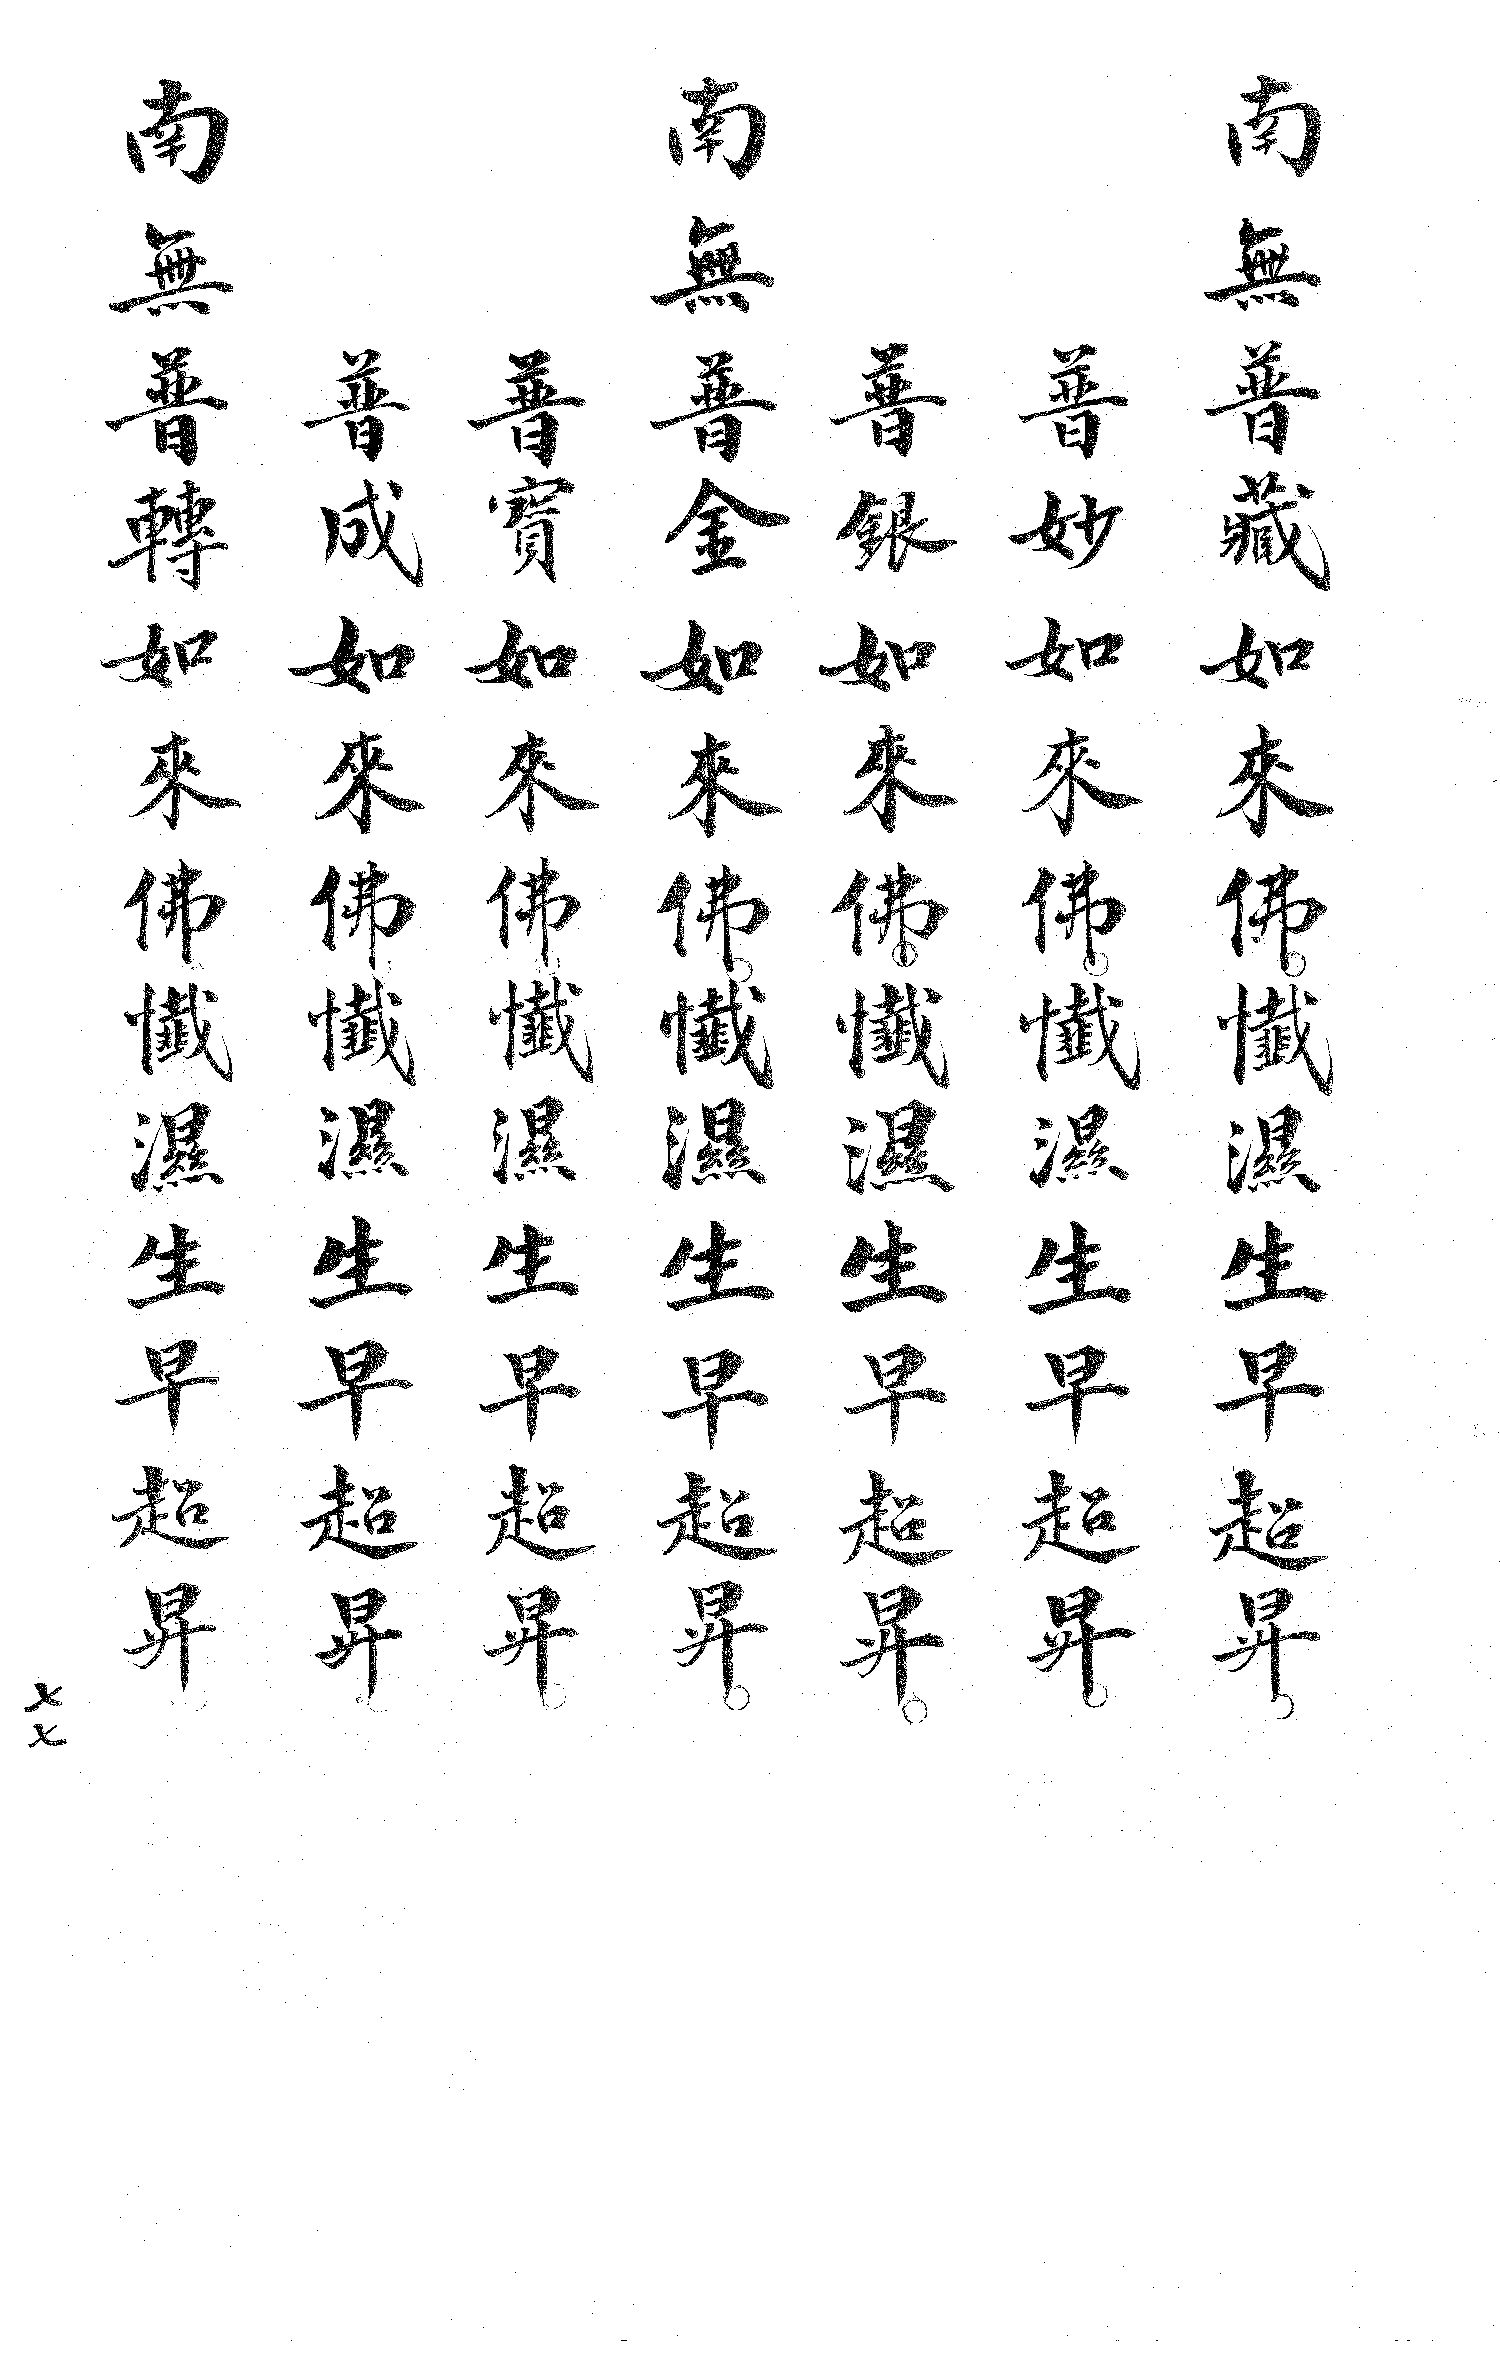 南無普藏如來佛。懺濕生早超昇。
普妙如來佛。懺濕生早超昇。
普銀如來佛。懺濕生早超昇。
南無普金如來佛。懺濕生早超昇。
普寶如來佛。懺濕生早超昇。
普成如來佛。懺濕生早超昇。
南無普轉如來佛。懺濕生早超昇。
七七